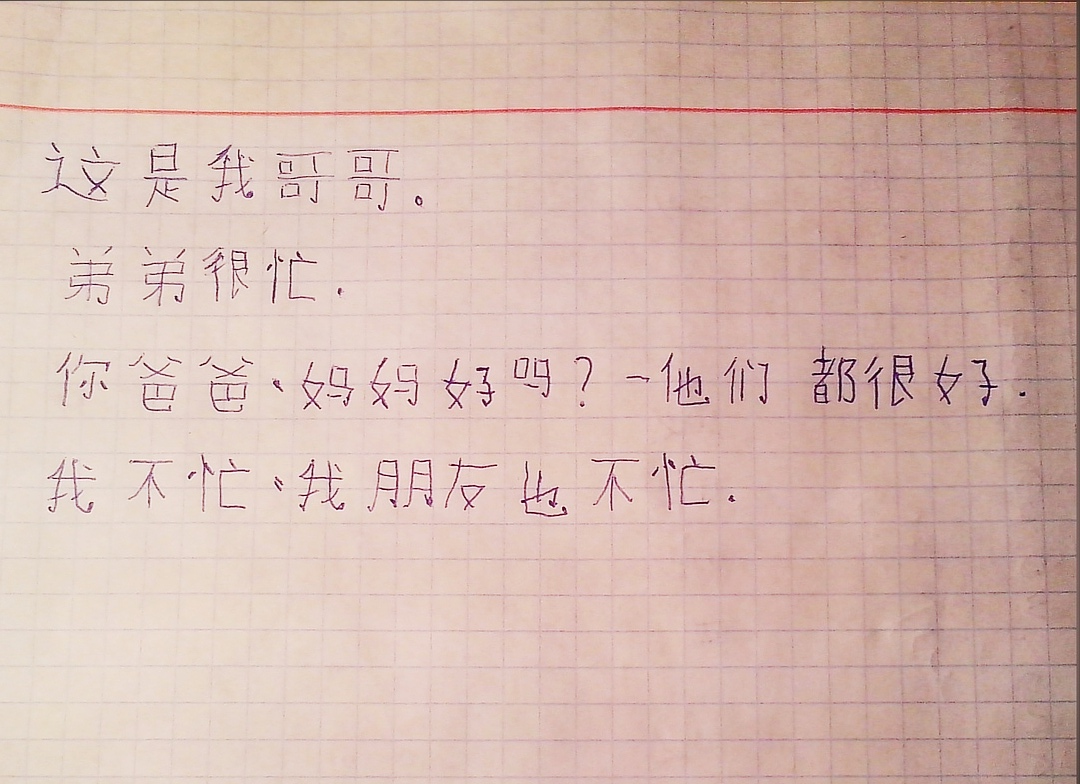 这是我哥哥。
弟弟很忙.
你爸爸、妈妈好吗? -他们都很好.
我不忙、我朋友也不忙.